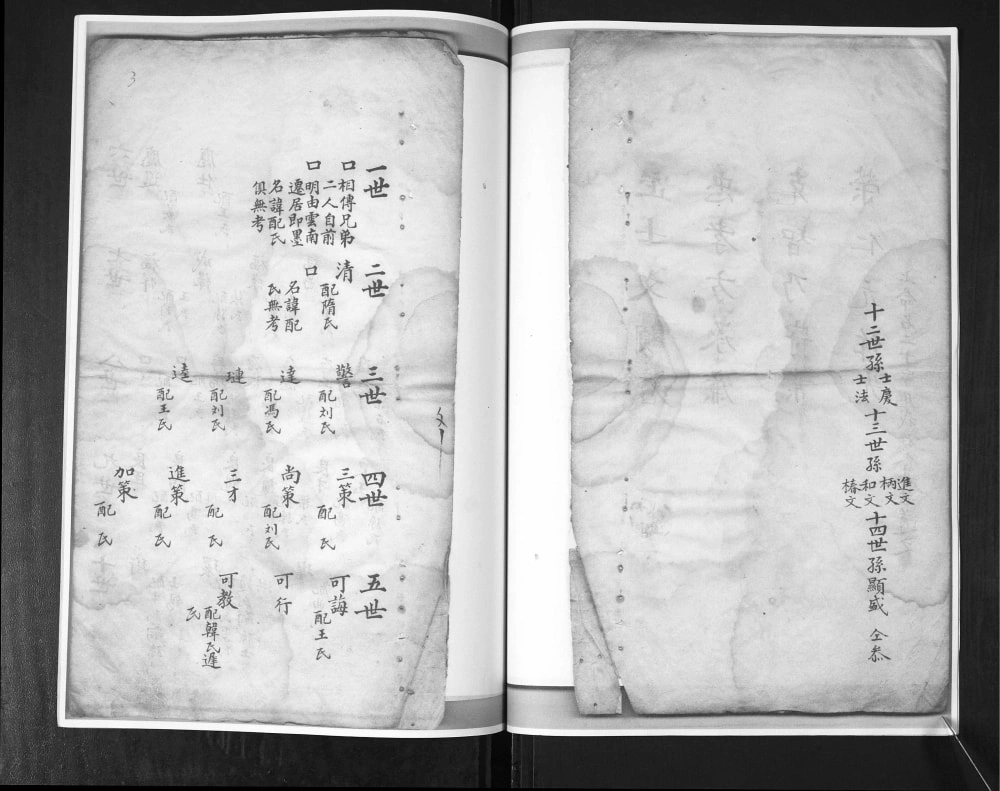 十二世孫
士慶
士法
十三世孫
進文
柄文
和文
椿文
十四世孫顯盛 仝叅
一世
口相傳兄弟
二人自前
口明由雲南
遷居即墨
名諱配氏
俱無考
二世
清
配隋氏
口
名諱配
氏無考
三世
警
配刘氏
達
配馮氏
璉
配刘氏
逵
配王氏
四世
三策
配 氏
尚策
配刘氏
三才
配 氏
進策
配 氏
加策
配 氏
五世
可誨
配王氏
可行
可教
配韓氏遲
氏
3